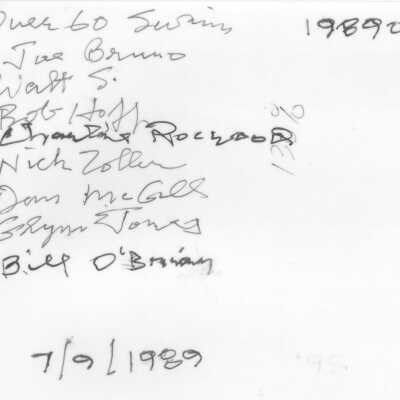 Over 60 Swim
19890
Joe Bruno
Walt S.
Bob Hoff
Charlie Rocwood
Nick Zoller
Dan McGill
Glynn Jones
Bill O'Brian
7/9/1989
'98